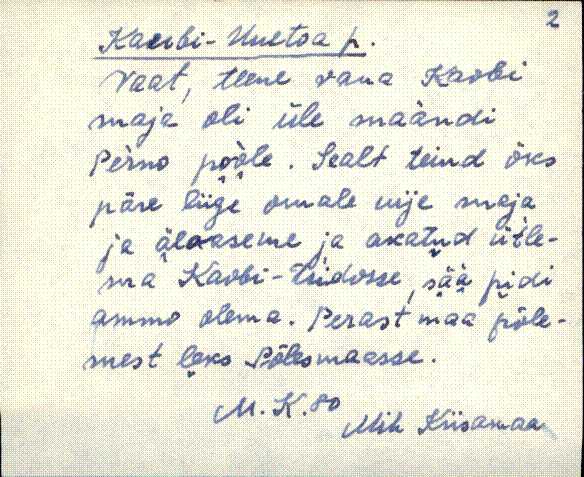 2
Kaobi-Uuetoa p.
Vaat, teene vana Kaobi
maja oli üle maändi
Pèrno pòòle. Sealt teind öks
päre liige omale uije maja
ja älaaseme ja akatud ütle-
ma Kaobi-Uüdosse, sää pidi
ammo olema. Perast maa põle-
mest leks Põlesmaasse.
M.K. 80
Mih Kiisamaa